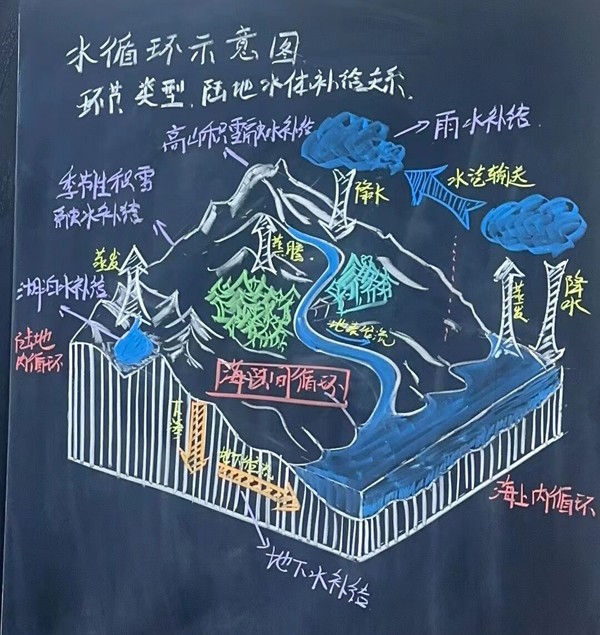 水循环示意图
环节、类型、陆地水体补给关系.
高山积雪融水补给
雨水补给.
季节性积雪
融水补给
降水
水汽输送
蒸发
蒸腾
湖泊水补给
蒸发
降水
陆地
内循环
地表径流
海陆间循环
下渗
地下径流
海上内循环
地下水补给